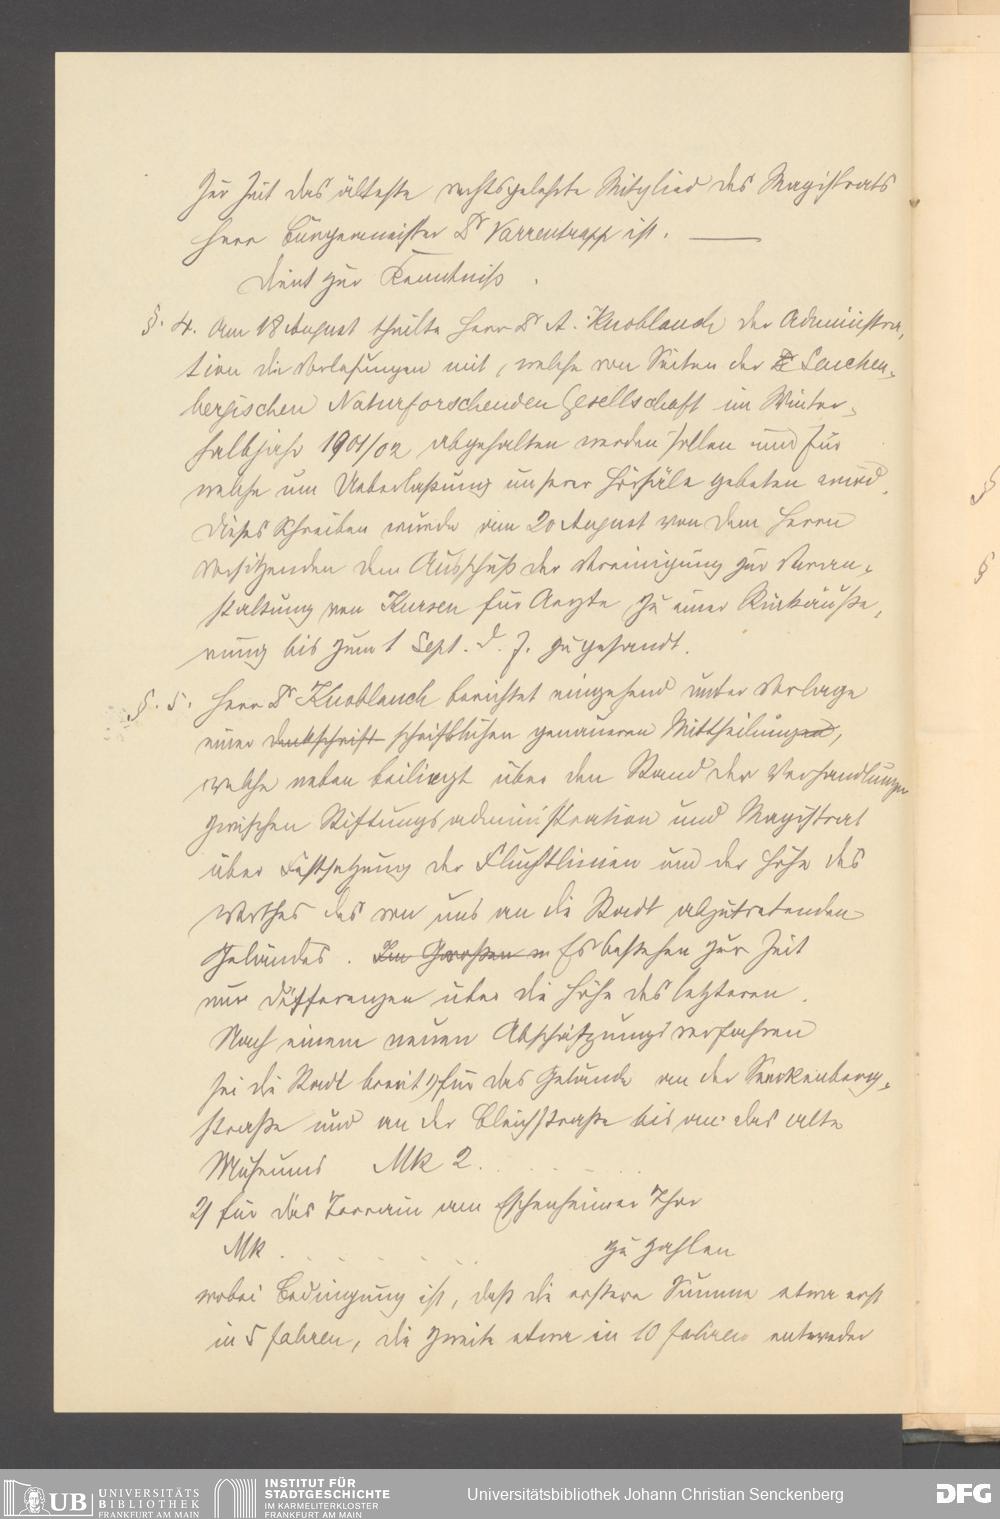 Zur Zeit das älteste rechtsgelehrte Mitglied des Magistrats
Herr Bürgermeister Dr Varrentrapp ist.
dient zur Kenntniß.
§. 4. Am 18 August theilte Herr Dr A. Knoblauch der Administra-
tion die Vorlesungen mit, welche von Seiten der Senckenbergischen
bergischen Naturforschenden Gesellschaft im Winter-
halbjahr 1901/02 abgehalten werden sollen und für
welche um Ueberlaßung unserer Hörsäle gebeten wird.
Dieses Schreiben wurde am 20 August von dem Herrn
Vorsitzenden dem Ausschuß der Vereinigung zur Veran-
staltung von Kursen für Aerzte zu einer Rückäuße-
rung bis zum 1 Sept. d. J. zugesandt.
§. 5. Herr Dr Knoblauch berichtet eingehend unter Vorlage
einer Denkschrift schriftlichen genaueren Mittheilungen,
welche neben beiliegt über den Stand der Verhandlungen
zwischen Stiftungsadministration und Magistrat
über Festsetzung der Fluchtlinien und der Höhe des
Werthes des von uns an die Stadt abzutretenden
Geländes. Im Großen Es bestehen zur Zeit
nur Differenzen über die Höhe des letzteren.
Nach einem neuen Abschätzungsverfahren
sei die Stadt bereit 1) für das Gelände an der Senckenberg-
straße und an der Bleichstraße bis an das alte
Museums Mk 2. . . . .
2) für das Terrain am Eschenheimer Thor
Mk . . . . . zu zahlen
wobei Bedingung ist, daß die erstere Summe etwa erst
in 5 Jahren, die zweite etwa in 10 Jahren entweder
§
§
UB UNIVERSITÄTS
BIBLIOTHEK
FRANKFURT AM MAIN
INSTITUT FÜR
STADTGESCHICHTE
IM KARMELITERKLOSTER
FRANKFURT AM MAIN
Universitätsbibliothek Johann Christian Senckenberg
DFG